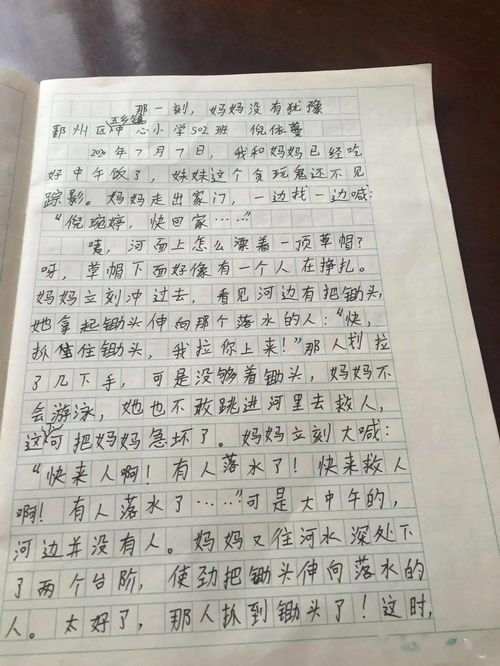 那一刻，妈妈没有犹豫
鄞州区五乡镇中心小学502班 倪依蔓
2021年7月7日，我和妈妈已经吃
好中午饭了，妹妹这个贪玩鬼还不见
踪影。妈妈走出家门，一边找一边喊：
“倪琬婷，快回家……”
咦，河面上怎么漂着一顶草帽？
呀，草帽下面好像有一个人在挣扎。
妈妈立刻冲过去，看见河边有把锄头，
她拿起锄头伸向那个落水的人：“快，
抓住锄头，我拉你上来！”那人划拉
了几下手，可是没够着锄头，妈妈不
会游泳，她也不敢跳进河里去救人，
这下可把妈妈急坏了。妈妈立刻大喊：
“快来人啊！有人落水了！快来救人
啊！有人落水了……”可是大中午的，
河边并没有人。妈妈又往河水深处下
了两个台阶，使劲把锄头伸向落水的
人。太好了，那人扒到锄头了！这时，